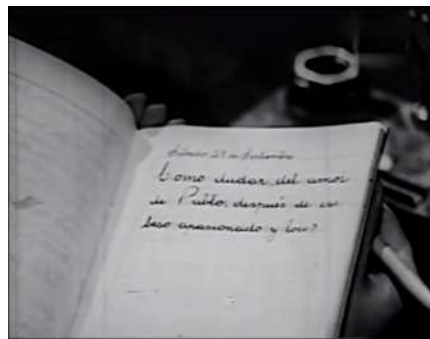 Sábado 29 de Setiembre
Como dudar del amor
de Pablo, después de ese
beso apasionado y loco?